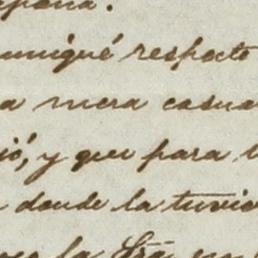 epana.
uniqué respecto
a mera casua
ió, y que para
donde la tuvie
la Sra